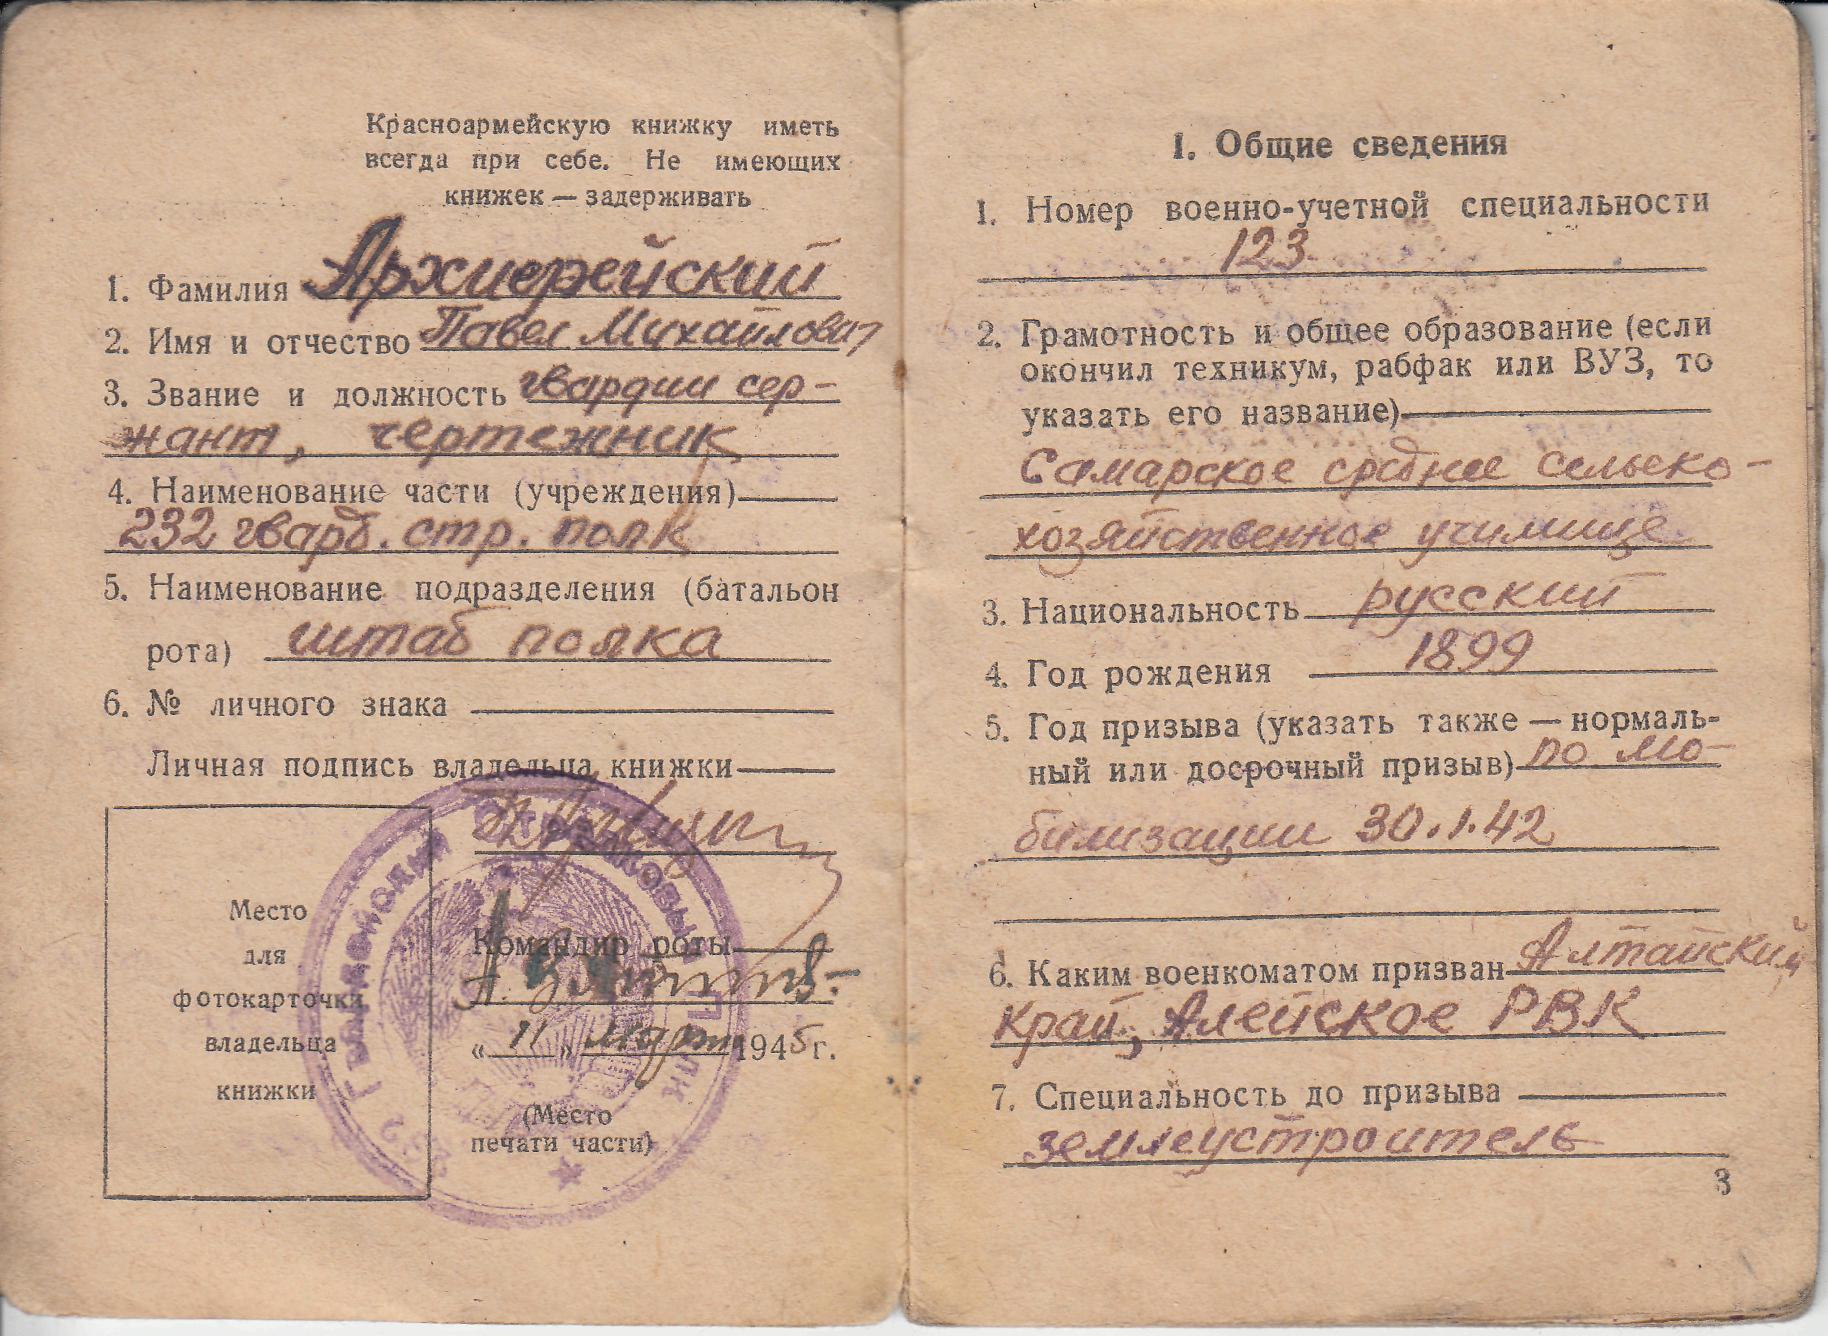 Красноармейскую книжку иметь
всегда при себе. Не имеющих
книжек — задерживать
1. Фамилия Архиерейский
2. Имя и отчество Павел Михайлович
3. Звание и должность гвардии сер-
жант, чертежник
4. Наименование части (учреждения)
232 гвард. стр. полк
5. Наименование подразделения (батальон
рота) штаб полка
6. № личного знака
Личная подпись владельца книжки
Командир роты
А.
« 11 » март 1945 г.
(Место
печати части)
Место
для
фотокарточки
владельца
книжки
232 Гвардейский Стрелковый Полк
1. Общие сведения
1. Номер военно-учетной специальности
123
2. Грамотность и общее образование (если
окончил техникум, рабфак или ВУЗ, то
указать его название)
Самарское среднее сельско-
хозяйственное училище
3. Национальность русский
4. Год рождения 1899
5. Год призыва (указать также — нормаль-
ный или досрочный призыв) по мо-
билизации 30.1.42
6. Каким военкоматом призван Алтайский
край, Алейское РВК
7. Специальность до призыва
землеустроитель
3